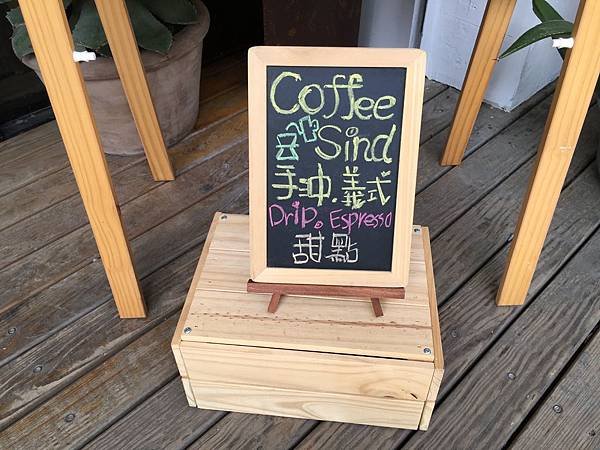 Coffee
Sind
手沖.義式
Drip. Espresso
甜點